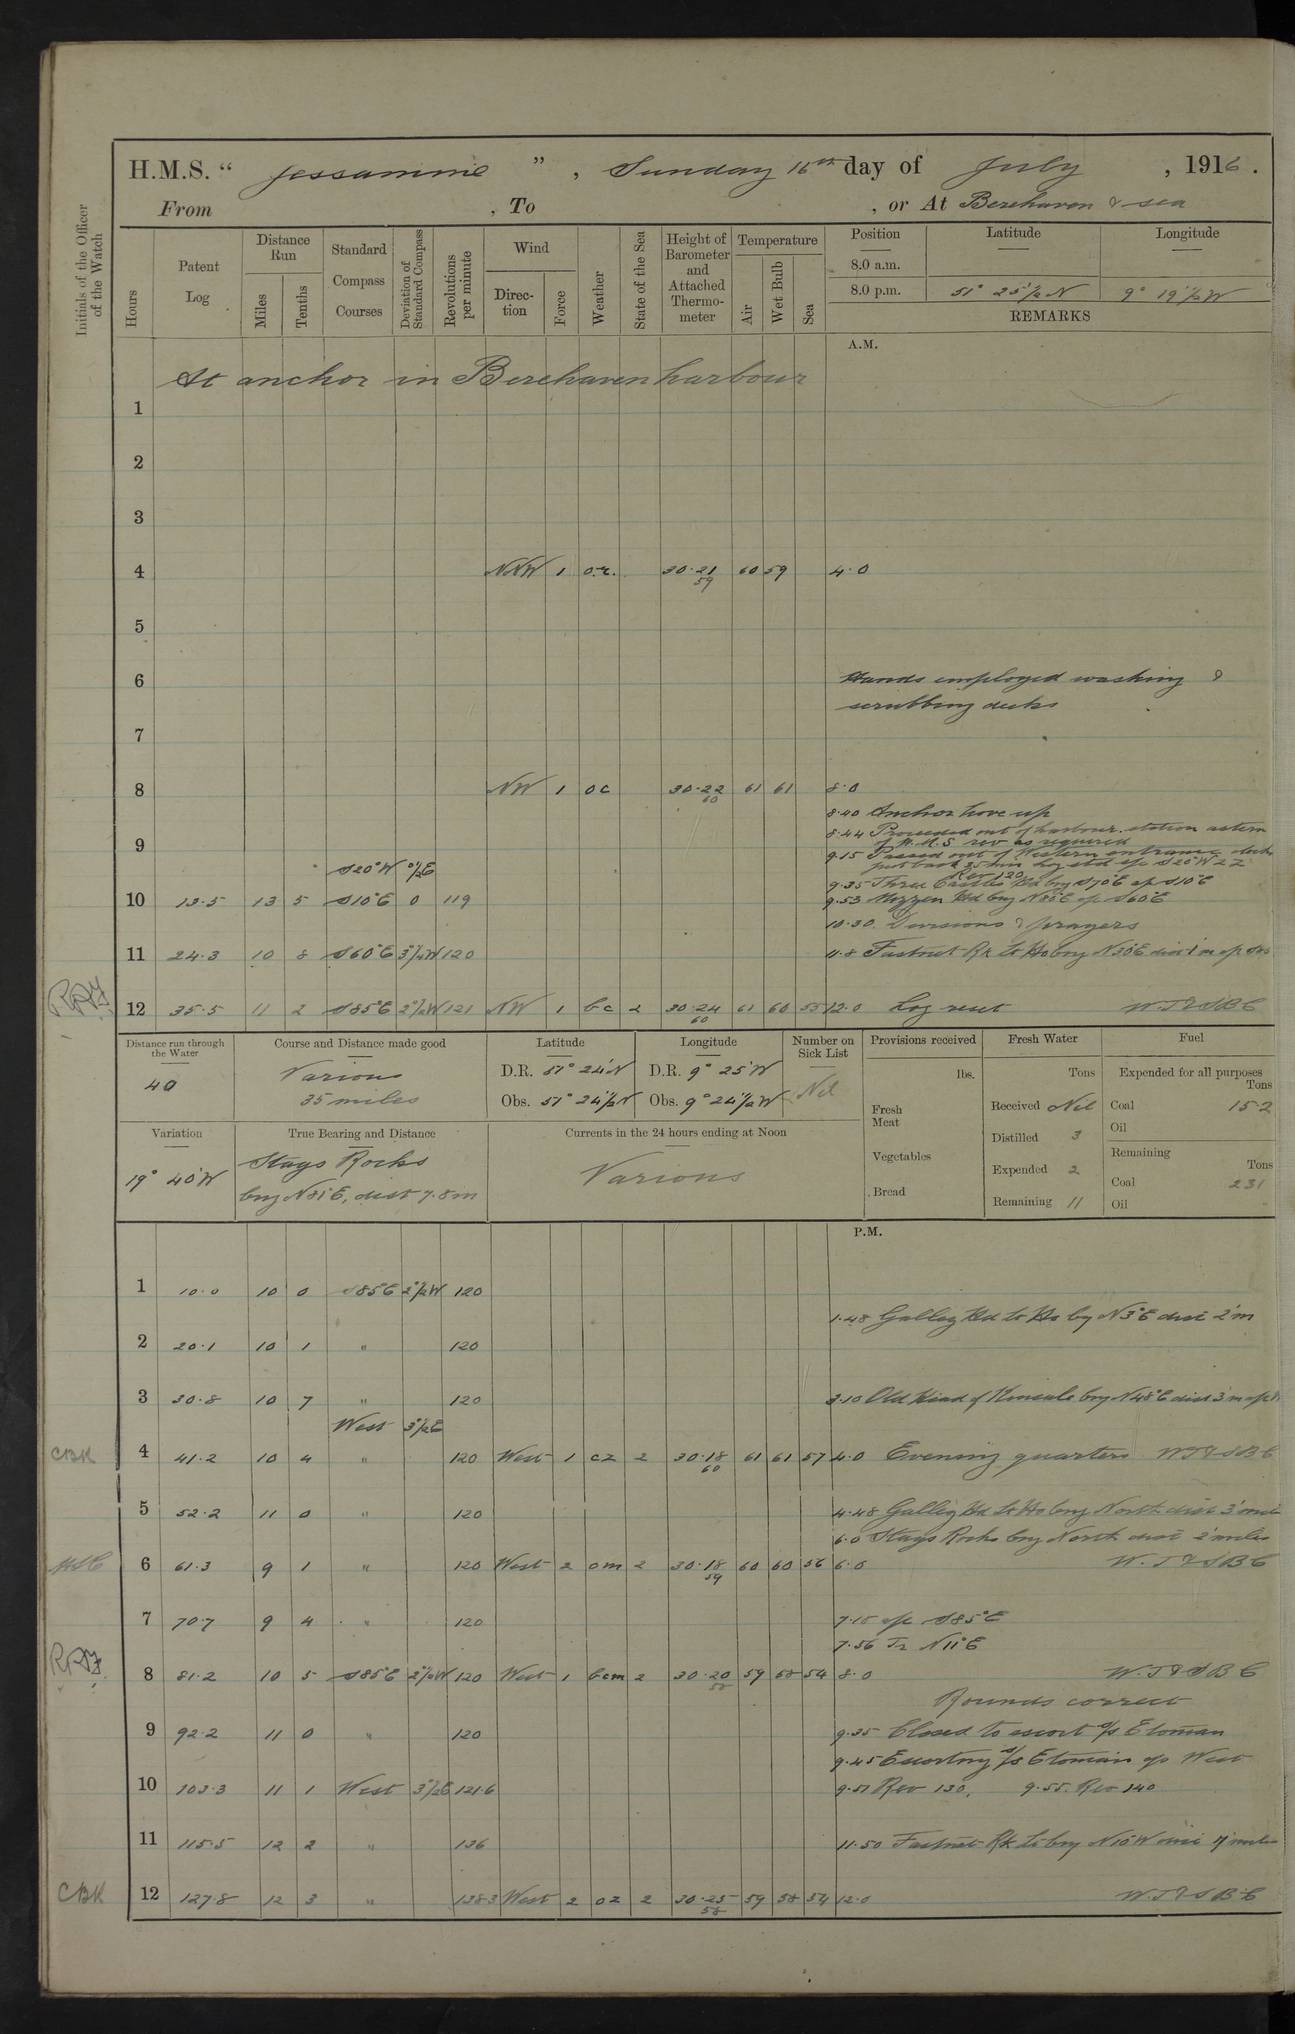 H.M.S. " Jessamine ", Sunday 16th day of July, 1916.
From , To , or At Berehaven & sea
Initials of the Officer of the Watch
Hours
Patent Log
Distance Run
Miles
Tenths
Standard Compass Courses
Deviation of Standard Compass
Revolutions per minute
Wind
Direction
Force
Weather
State of the Sea
Height of Barometer and Attached Thermometer
Temperature
Air
Wet Bulb
Sea
Position
Latitude
Longitude
8.0 a.m.
8.0 p.m. 51° 25½' N 9° 19½' W
REMARKS
A.M.
At anchor in Berehaven harbour
1
2
3
4 NNW 1 o.r. 30.21 59 60 59 4.0
5
6 Hands employed washing &
scrubbing decks
7
8 NW 1 oc 30.22 60 61 61 8.0
8.40 Anchor hove up
8.44 Proceeded out of harbour. station astern
of W.M.S rev as required
9
9.15 Passed out of Western entrance clocks
put back 35 min log etd a/c S20°W 22
Rev 120
S20°W 0½°E
9.35 Three Castles Hd brg S70°E a/c S10°E
10 13.5 13 5 S10°E 0 119 9.53 Mizzen Hd brg N80°E a/c S60°E
10.30 Divisions & prayers
11 24.3 10 8 S60°E 3½°W 120 11.8 Fastnet Rk Lt Ho brg N30°E dist 1'm a/c S85
12 35.5 11 2 S85°E 2½°W 121 NW 1 bc 2 30.24 60 61 60 55 12.0 Log reset W.T & S B C
Distance run through the Water
40
Course and Distance made good
Various
35 miles
Latitude
D.R. 51° 24' N
Obs. 51° 24½' N
Longitude
D.R. 9° 25' W
Obs. 9° 24½' W
Number on Sick List
Nil
Provisions received
lbs.
Fresh Meat
Vegetables
Bread
Fresh Water
Tons
Received Nil
Distilled 3
Expended 2
Remaining 11
Fuel
Expended for all purposes
Tons
Coal 15.2
Oil
Remaining
Tons
Coal 231
Oil
Variation
19° 40' W
True Bearing and Distance
Stags Rocks
brg N81°E, dist 7.8m
Currents in the 24 hours ending at Noon
Various
P.M.
1 10.0 10 0 S85°E 2½°W 120
1.48 Galley Hd Lt Ho brg N3°E dist 2'm
2 20.1 10 1 " 120
3 30.8 10 7 " 120 3.10 Old Head of Kinsale brg N48°E dist 3'm a/c
West 3½°E
CBK 4 41.2 10 4 " 120 West 1 cz 2 30.18 60 61 61 57 4.0 Evening quarters W T & S B C
5 52.2 11 0 " 120 4.48 Galley Hd Lt Ho brg North dist 3' miles
6.0 Stags Rocks brg North dist 2' miles
6 61.3 9 1 " 120 West 2 om 2 30.18 59 60 60 56 6.0 W. T & S B C
7 70.7 9 4 " 120 7.15 a/c S85°E
7.56 Tr N11°E
8 81.2 10 5 S85°E 2½°W 120 West 1 bcm 2 30.20 58 59 58 54 8.0 W. T & S B C
Rounds correct
9 92.2 11 0 " 120 9.35 Closed to escort s/s Etonian
9.45 Escorting s/s Etonian a/c West
10 103.3 11 1 West 3½°E 121.6 9.51 Rev 130, 9.55. Rev 140
11 115.5 12 2 " 136 11.50 Fastnet Rk Lt brg N10°W dist 7' miles
CBK 12 127.8 12 3 " 138.3 West 2 oz 2 30.25 58 59 58 54 12.0 W. T & S B C